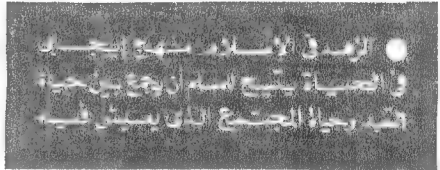 الزهد في الإسلام منهج إيجابي
في الحياة يتيح لإنسان أن يجمع بين حياة
الفرد وحياة المجتمع الذي يعيش فيه